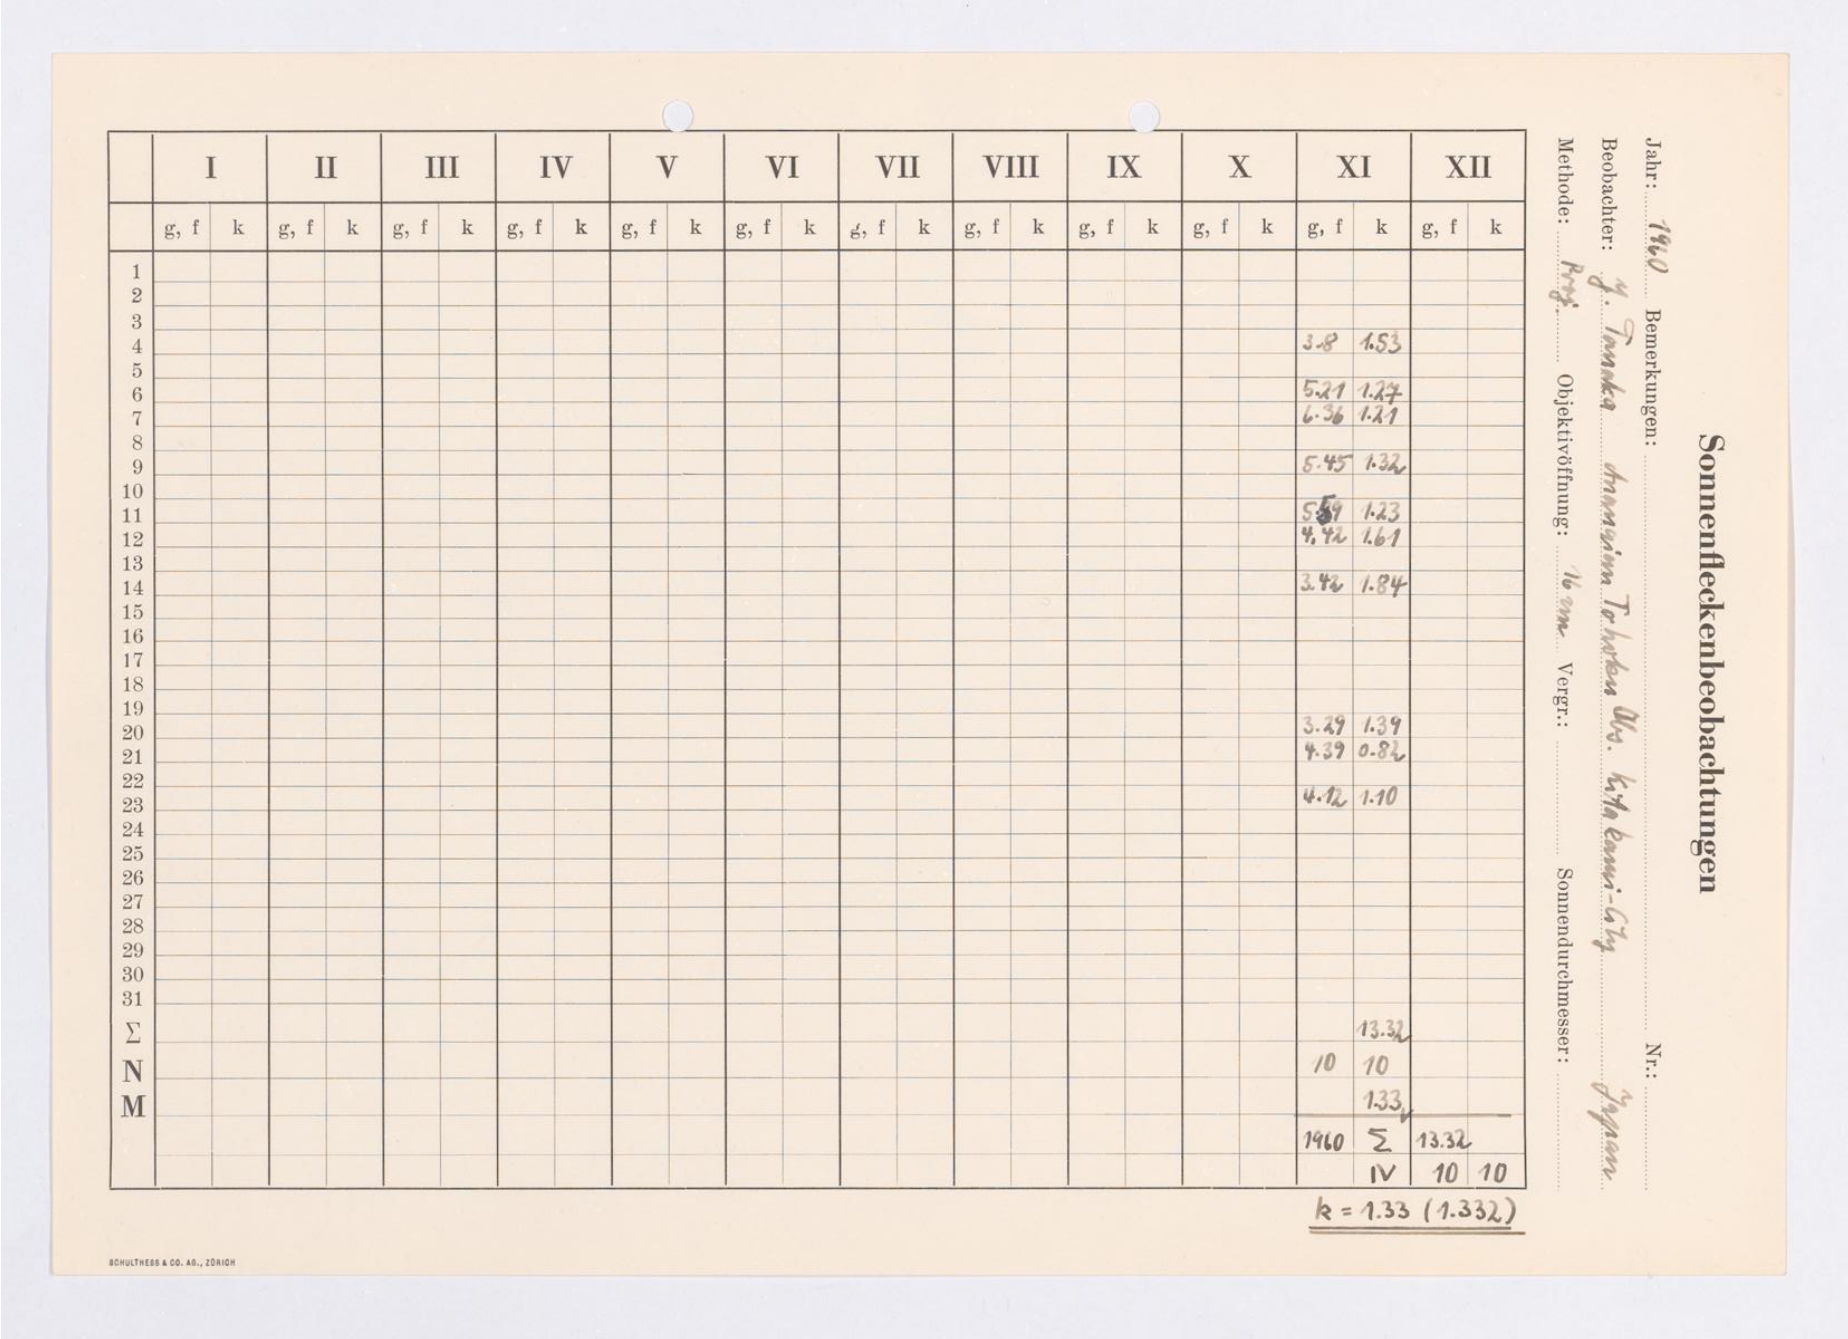 Sonnenfleckenbeobachtungen
Jahr: 1960 Bemerkungen: Nr.:
Beobachter: Y. Tanaka Obs. Kitakami-City Japan
Methode: Proj. Objektivöffnung: Vergr.: Sonnendurchmesser:
I II III IV V VI VII VIII IX X XI XII
g, f k g, f k g, f k g, f k g, f k g, f k g, f k g, f k g, f k g, f k g, f k g, f k
1
2
3
4 3.8 1.53
5
6 5.21 1.27
7 6.36 1.21
8
9 5.45 1.32
10
11 5.59 1.23
12 4.42 1.61
13
14 3.42 1.84
15
16
17
18
19
20 3.29 1.39
21 4.39 0.82
22
23 4.12 1.10
24
25
26
27
28
29
30
31
Σ 13.32
N 10 10
M 1.33
1960 Σ 13.32
10 10
k = 1.33 (1.332)
SCHULTHESS & CO. AG., ZÜRICH